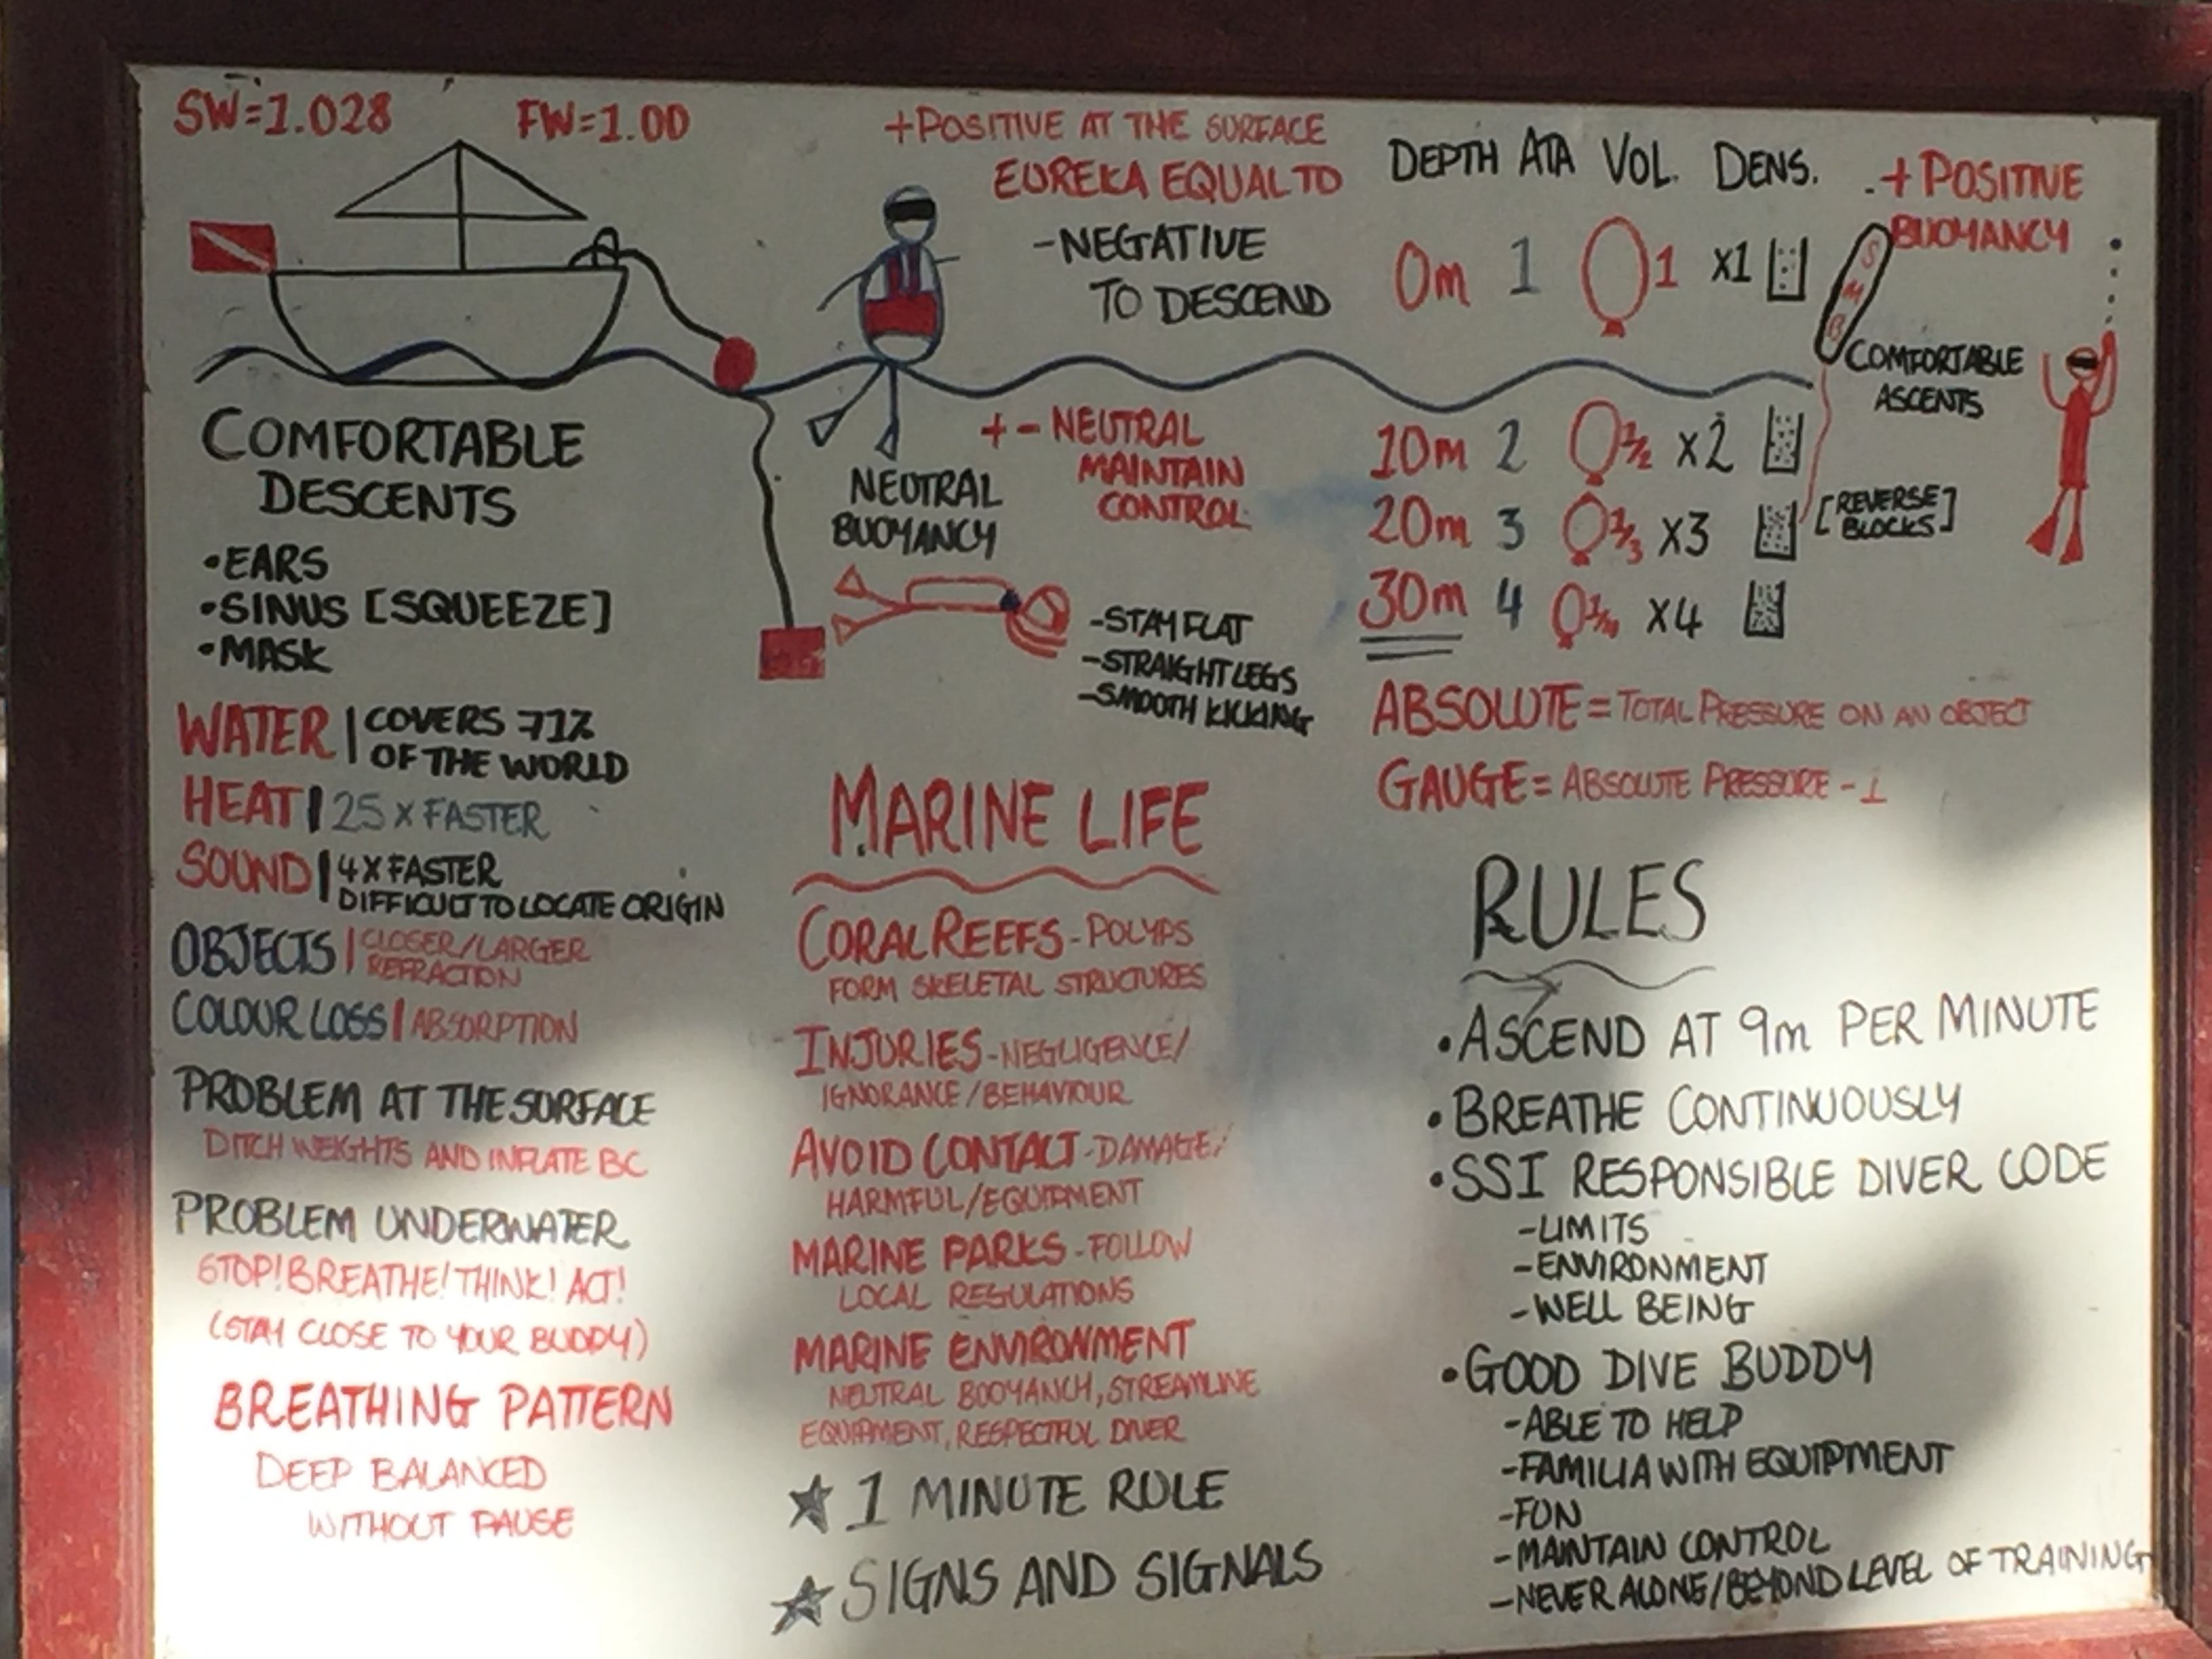 SW=1.028
FW=1.00
+POSITIVE AT THE SURFACE
EUREKA EQUAL TO
-NEGATIVE
TO DESCEND
COMFORTABLE
DESCENTS
•EARS
•SINUS [SQUEEZE]
•MASK
+- NEUTRAL
MAINTAIN
CONTROL
NEUTRAL
BUOYANCY
-STAY FLAT
-STRAIGHT LEGS
-SMOOTH KICKING
DEPTH ATA VOL. DENS.
0m 1 1 x1
10m 2 1/2 x2
20m 3 1/3 x3
30m 4 1/4 x4
+POSITIVE
BUOYANCY
SMB
COMFORTABLE
ASCENTS
[REVERSE
BLOCKS]
ABSOLUTE = TOTAL PRESSURE ON AN OBJECT
GAUGE = ABSOLUTE PRESSURE - 1
WATER | COVERS 71%
OF THE WORLD
HEAT | 25 x FASTER
SOUND | 4X FASTER
DIFFICULT TO LOCATE ORIGIN
OBJECTS | CLOSER/LARGER
REFRACTION
COLOUR LOSS | ABSORPTION
PROBLEM AT THE SURFACE
DITCH WEIGHTS AND INFLATE BC
PROBLEM UNDERWATER
STOP! BREATHE! THINK! ACT!
(STAY CLOSE TO YOUR BUDDY)
BREATHING PATTERN
DEEP BALANCED
WITHOUT PAUSE
MARINE LIFE
CORAL REEFS - POLYPS
FORM SKELETAL STRUCTURES
INJURIES - NEGLIGENCE/
IGNORANCE/BEHAVIOUR
AVOID CONTACT - DAMAGE/
HARMFUL/EQUIPMENT
MARINE PARKS - FOLLOW
LOCAL REGULATIONS
MARINE ENVIRONMENT
NEUTRAL BUOYANCY, STREAMLINE
EQUIPMENT, RESPECTFUL DIVER
★ 1 MINUTE RULE
★ SIGNS AND SIGNALS
RULES
•ASCEND AT 9m PER MINUTE
•BREATHE CONTINUOUSLY
•SSI RESPONSIBLE DIVER CODE
-LIMITS
-ENVIRONMENT
-WELL BEING
•GOOD DIVE BUDDY
-ABLE TO HELP
-FAMILIA WITH EQUIPMENT
-FUN
-MAINTAIN CONTROL
-NEVER ALONE/BEYOND LEVEL OF TRAINING